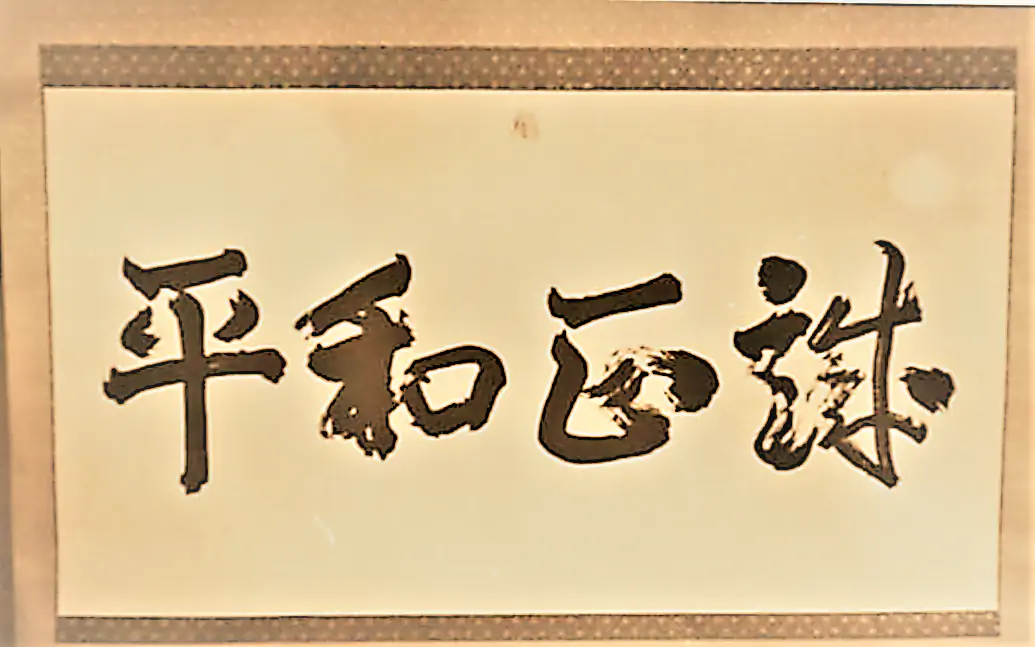 誠正和平